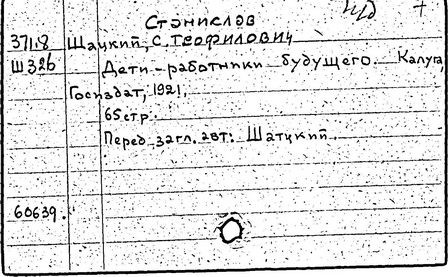 Станислав
371.8 Шацкий, С. ТЕОФИЛОВИЧ
Ш326 Дети-работники будущего. Калуга,
Госиздат, 1921.
65 стр.
Перед загл. авт: Шатцкий.
60639.